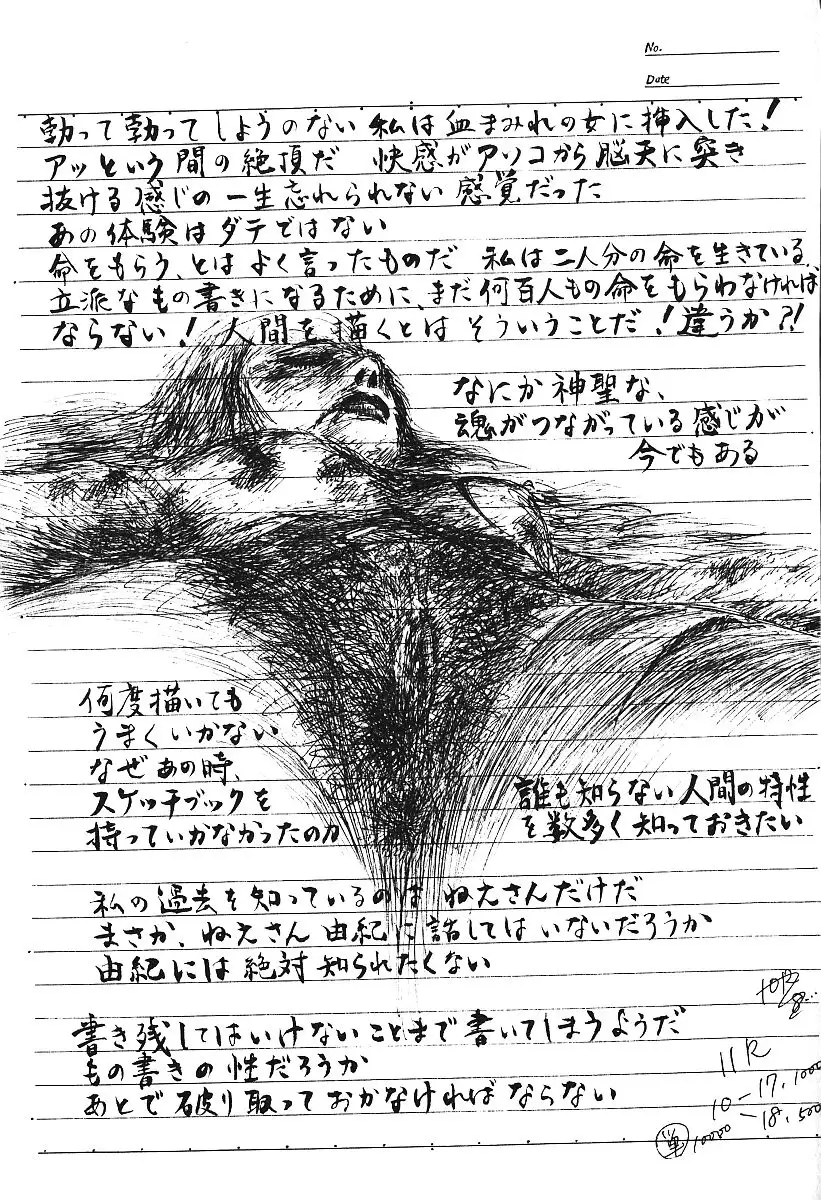 No.
Date
勃って勃ってしようのない 私は血まみれの女に挿入した!
アッという間の絶頂だ 快感がアソコから脳天に突き
抜ける感じの一生忘れられない感覚だった
あの体験はダテではない
命をもらう、とはよく言ったものだ 私は二人分の命を生きている、
立派なもの書きになるために、まだ何百人もの命をもらわなければ
ならない! 人間を描くとはそういうことだ!違うか?!
なにか神聖な、
魂がつながっている感じが
今でもある
何度描いても
うまくいかない
なぜあの時、
スケッチブックを
持っていかなかったのか
誰も知らない人間の特性
を数多く知っておきたい
私の過去を知っているのは ねえさんだけだ
まさか、ねえさん 由紀に話してはいないだろうか
由紀には絶対知られたくない
書き残してはいけないことまで書いてしまうようだ
もの書きの性だろうか
あとで破り取っておかなければならない
11R
10-17,1000
10000-18,500